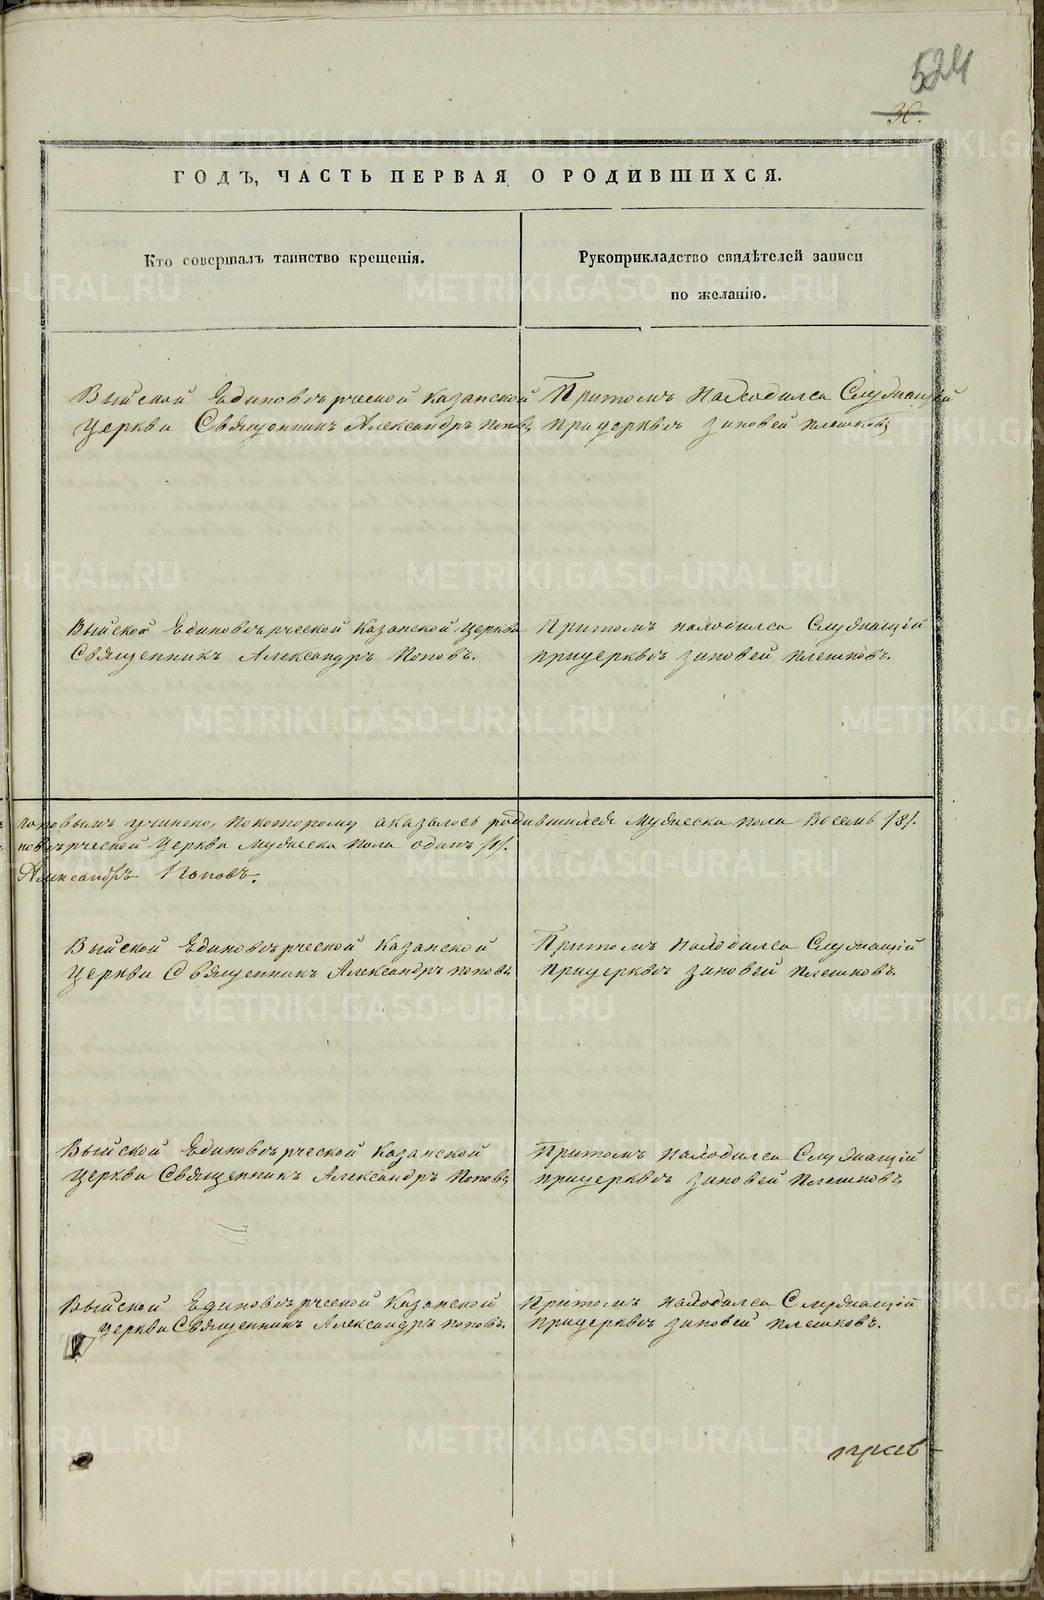 524
36.
ГОДЪ, ЧАСТЬ ПЕРВАЯ О РОДИВШИХСЯ.
Кто совершалъ таинство крещенія.
Рукоприкладство свидѣтелей записи
по желанію.
Выйской Единовѣрческой Казанской
церкви Священникъ Александръ Поповъ
Притомъ находился Служащій
прицерквѣ Зиновей Плешковъ
Выйской Единовѣрческой Казанской церкви
Священникъ Александръ Поповъ.
Притомъ находился Служащій
прицерквѣ Зиновей Плешковъ.
поповымъ учинено, покоторому оказалось родившихся мужеска пола Восемь /8/.
новѣрческой церкви мужеска пола одинъ /1/.
Александръ Поповъ.
Выйской Единовѣрческой Казанской
церкви Священникъ Александръ Поповъ
Притомъ находился Служащій
прицерквѣ Зиновей Плешковъ.
Выйской Единовѣрческой Казанской
церкви Священникъ Александръ Поповъ
Притомъ находился Служащій
прицерквѣ Зиновей Плешковъ
Выйской Единовѣрческой Казанской
церкви Священникъ Александръ Поповъ.
Притомъ находился Служащій
прицерквѣ Зиновей Плешковъ.
прав-
METRIKI.GASO-URAL.RU